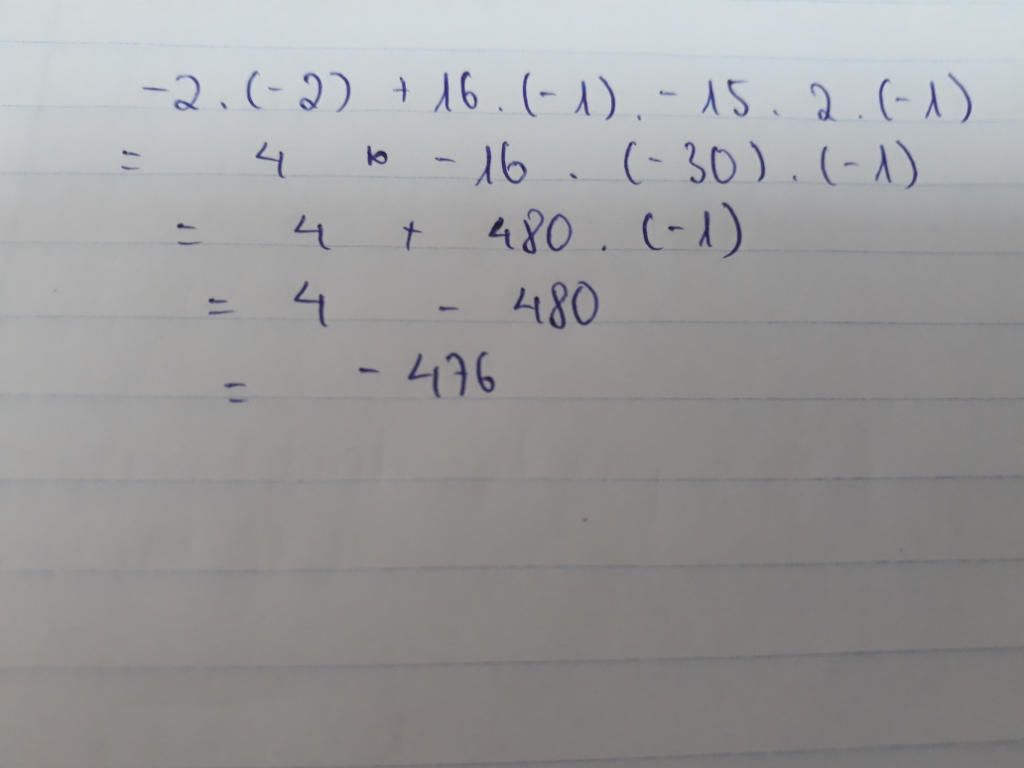 -2 . (-2) + 16 . (-1) . - 15 . 2 . (-1)
= 4 - 16 . (-30) . (-1)
= 4 + 480 . (-1)
= 4 - 480
= - 476